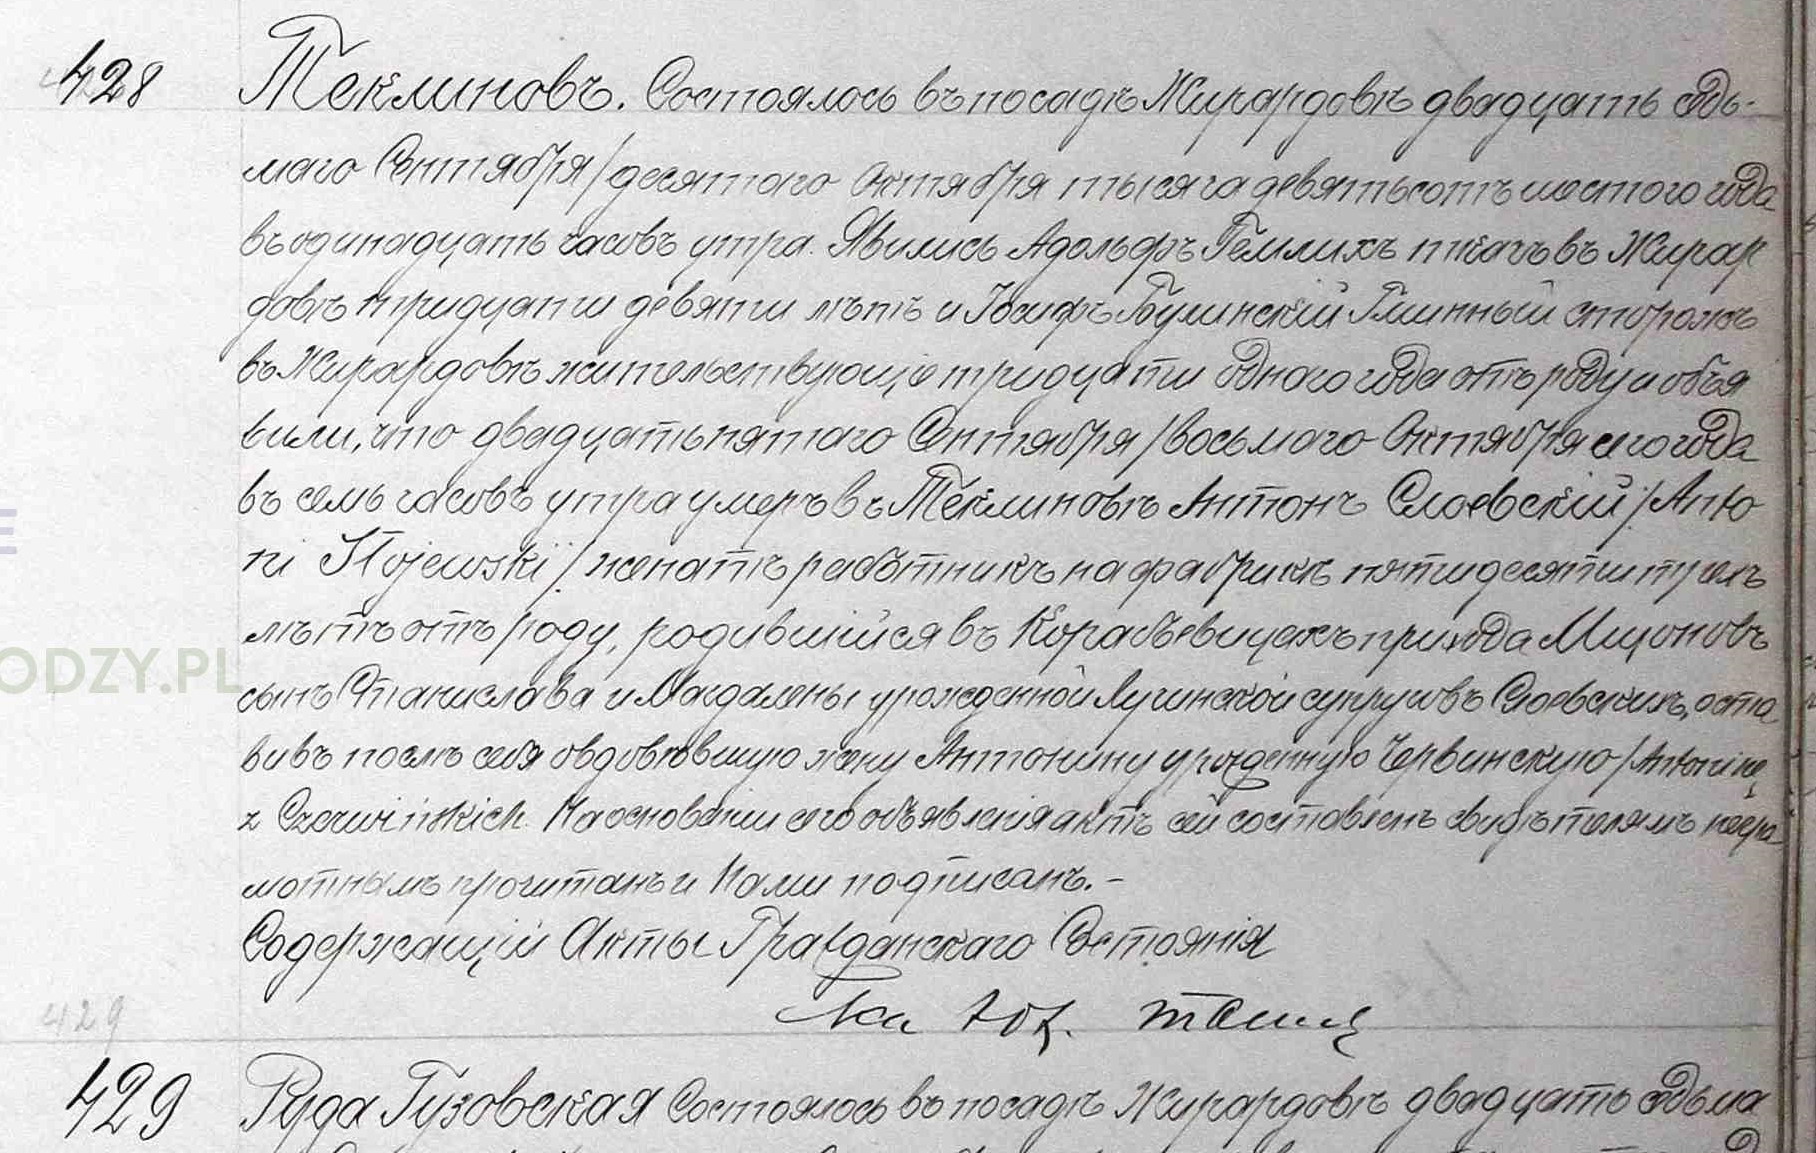 428 Теклиновъ. Состоялось въ посадѣ Жирардовѣ двадцать седь-
маго Сентября/десятаго Октября тысяча девятьсотъ шестого года
въ одинадцать часовъ утра. Явились Адольфъ Гемлихъ ткачъ въ Жирар
довѣ тридцати девяти лѣтъ и Іосифъ Булинскій Гминный сторожъ
въ Жирардовѣ жительствующіе тридцати одного года отъ роду и объя
вили, что двадцать пятаго Сентября/восьмаго Октября сего года
въ семь часовъ утра умеръ въ Теклиновѣ Антонъ Слоевскій/Anto
ni Słojewski/женатъ работникъ на фабрикѣ пятидесяти трехъ
лѣтъ отъ роду, родившійся въ Корабѣевицахъ прихода Мщоновъ
сынъ Станислава и Магдалены урожденной Лучинской супруговъ Слоевскихъ, оста
вивъ послѣ себя овдовѣвшую жену Антонину урожденную Червинскую/Antoninę
z Czerwińskich. На основаніи сего объявленія актъ сей составленъ свидѣтелямъ негра
мотнымъ прочитанъ и Нами подписанъ.-
Содержащій Акты Гражданскаго Состоянія
429
429 Руда Гузовская Состоялось въ посадѣ Жирардовѣ двадцать седьма
ODZY.PL